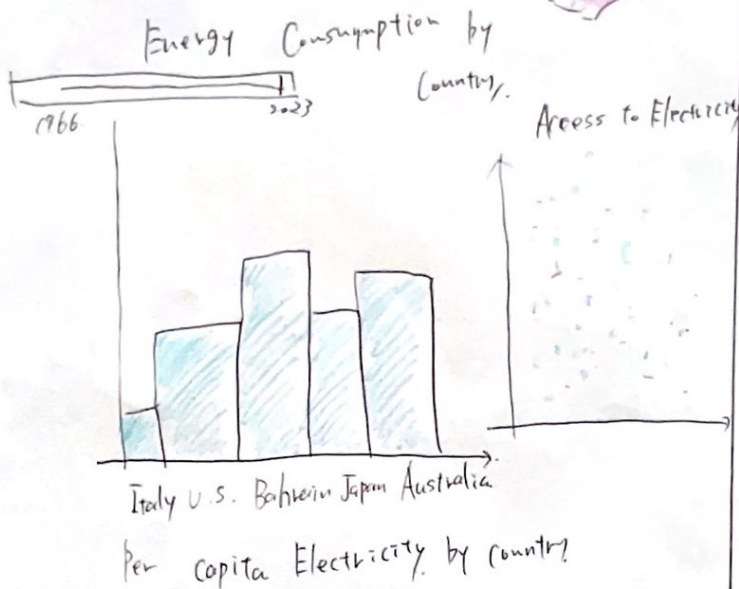 Energy Consumption by
Country.
1966
2023
Access to Electricity
Italy U.S. Bahrain Japan Australia
Per capita Electricity by country